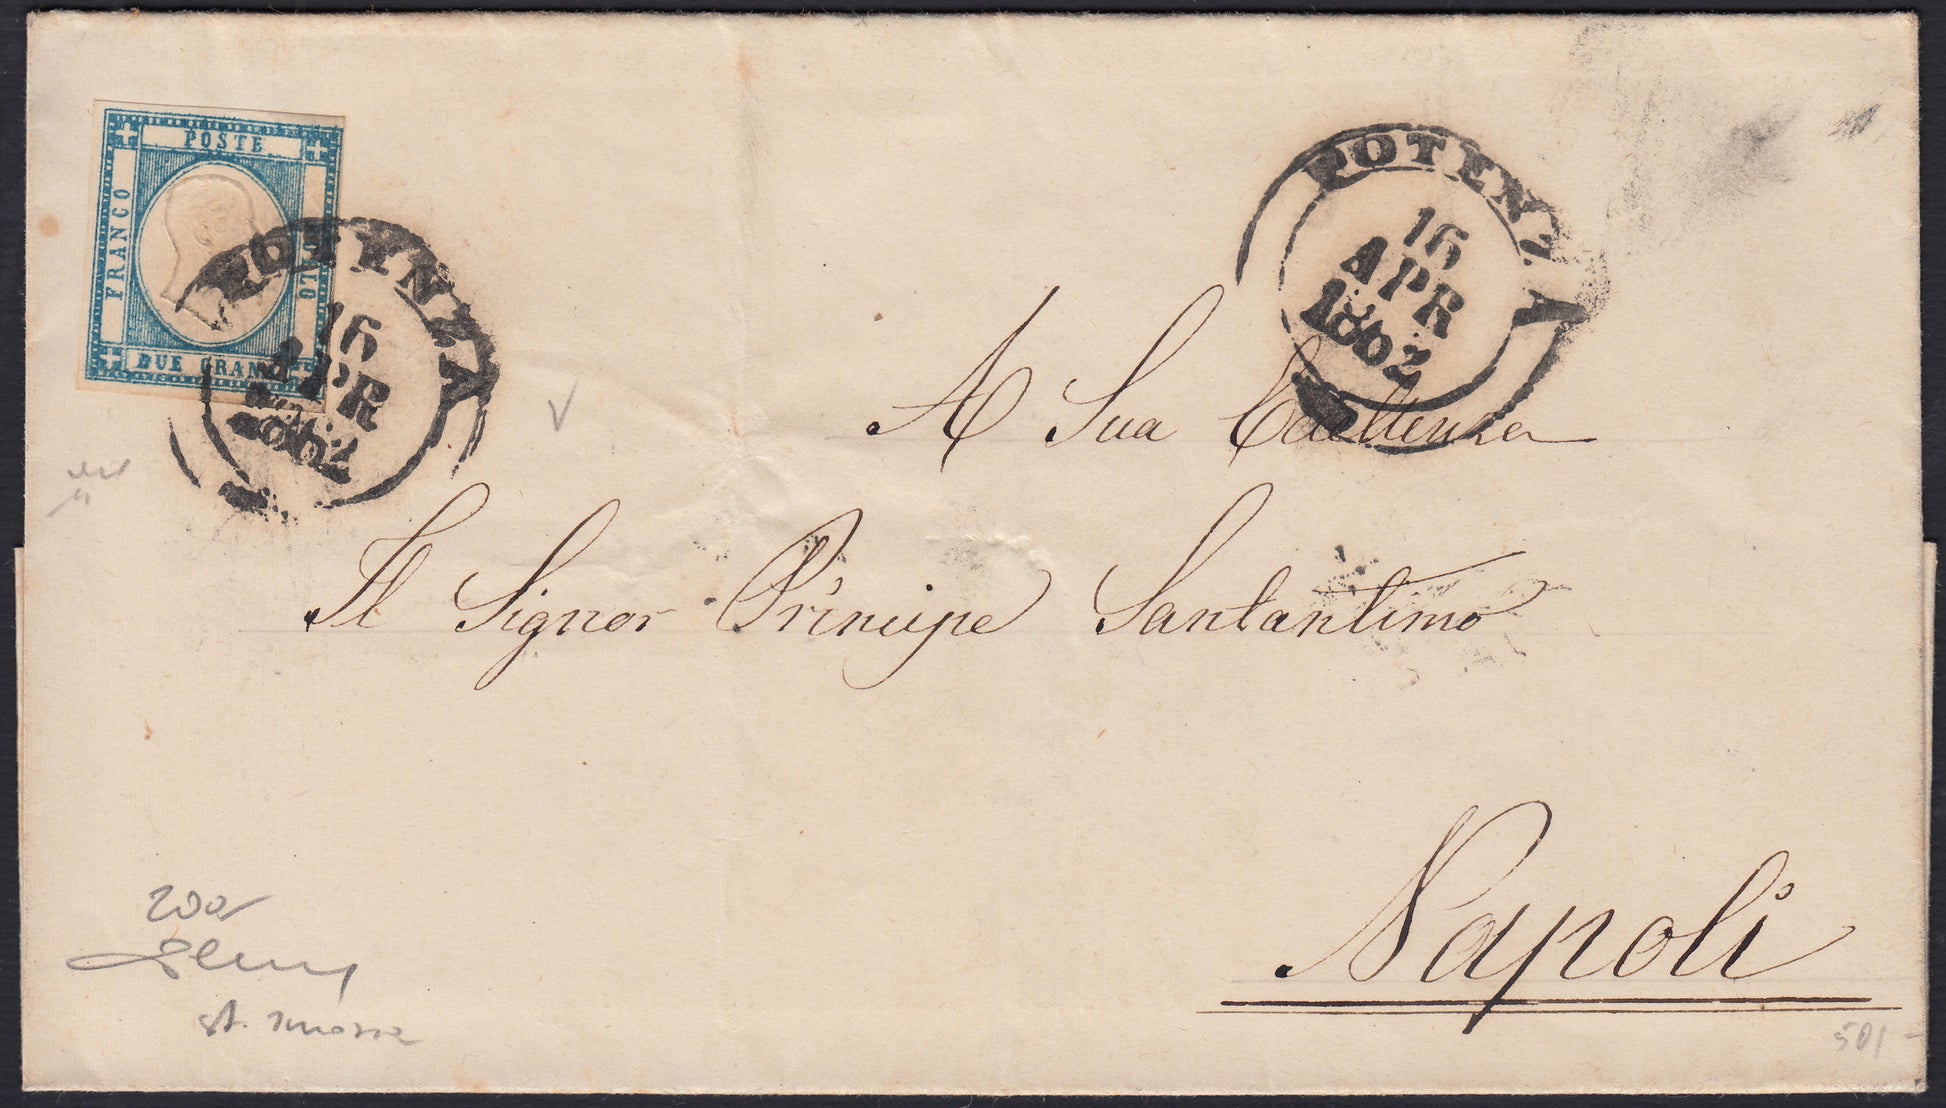 POSTE
FRANCO
BOLLO
DUE GRANA
POTENZA
16
APR
1862
POTENZA
16
APR
1862
A Sua Eccellenza
Il Signor Principe Santantimo
Napoli
200